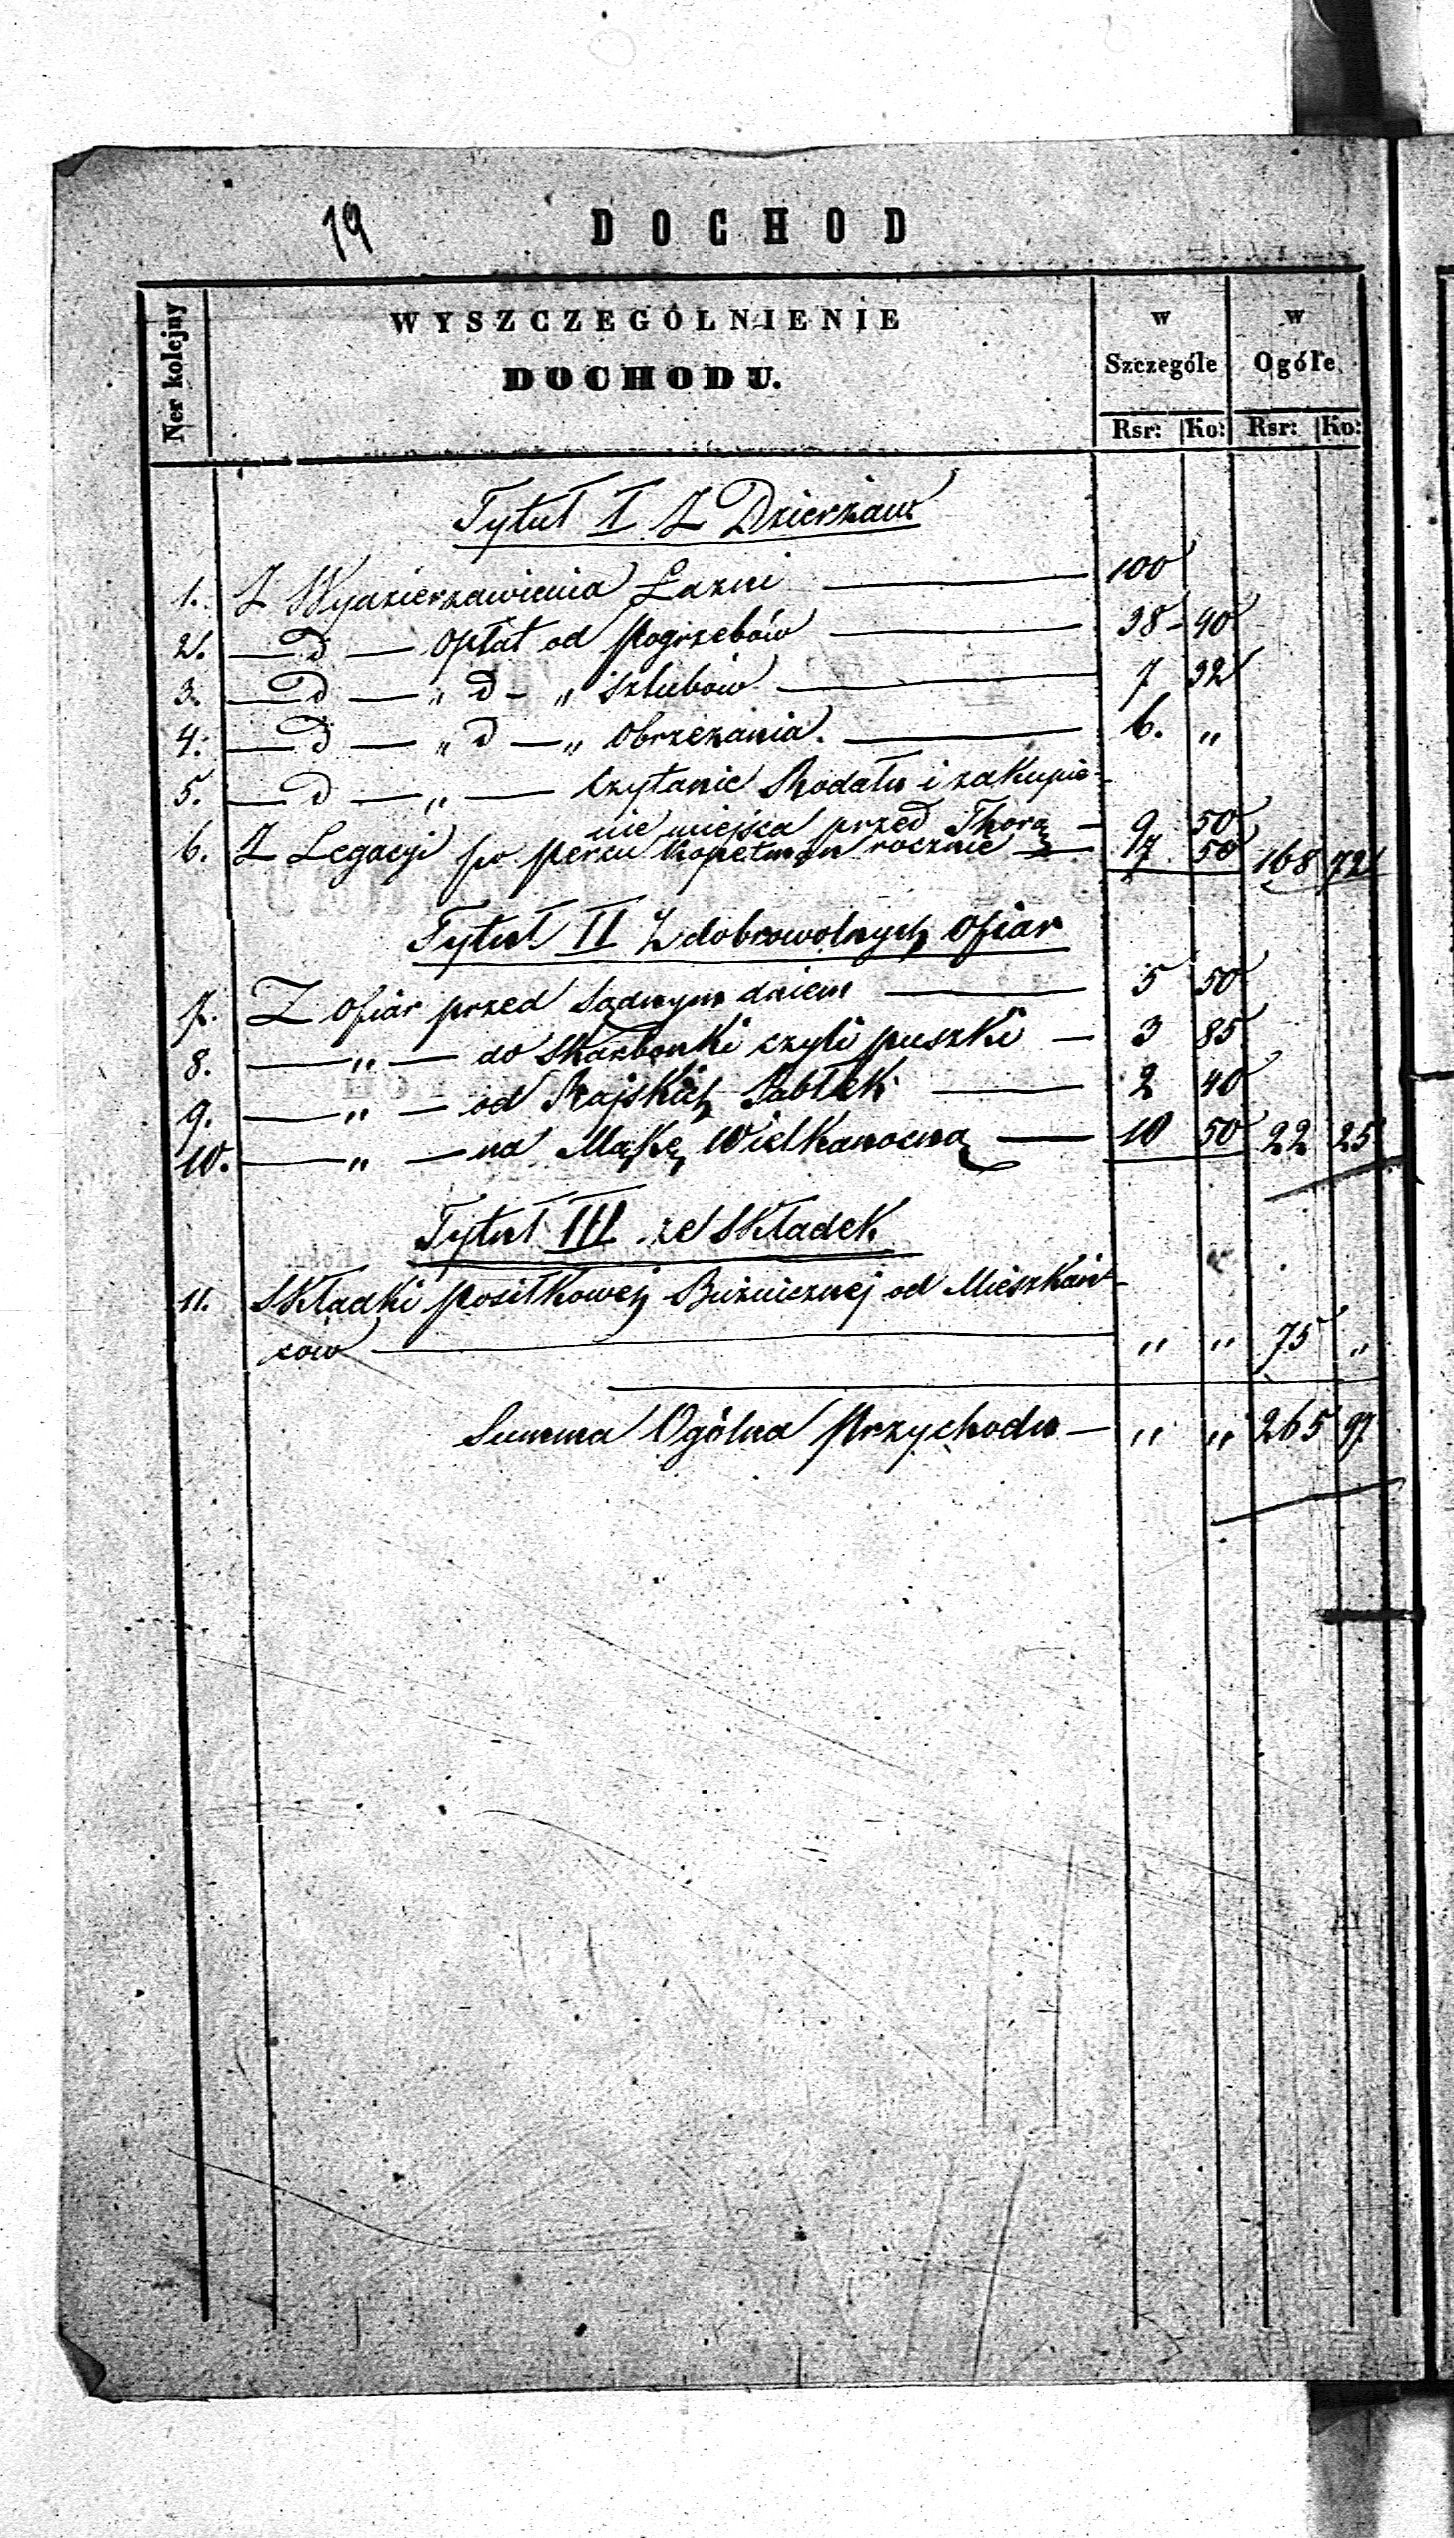 19
DOCHOD
Ner kolejny
WYSZCZEGÓLNIENIE
DOCHODU.
w Szczególe
w Ogóle
Rsr: Ko: Rsr: Ko:
Tytuł I Z Dzierżaw
1. Z Wydzierzawienia Łazni — 100
2. — D — Opłat od Pogrzebów — 38 - 40
3. — D — „ D - „ Szlubów — 7 32
4. — D — „ D — „ Obrzezania. — 6. „
5. — D — „ — Czytanie Rodału i zakupie-
nie miejsca przed Thorą — 9 50
6. Z Legacyi po Percu Kopelman rocznie — 7 50 168 72
Tytuł II Z dobrowolnych Ofiar
7. Z Ofiar przed Sądnym dniem — 5 50
8. — „ — do Skarbonki czyli puszki — 3 85
9. — „ — od Rajskich Jabłek — 2 40
10. — „ — na Mąkę Wielkanocną — 10 50 22 25
Tytuł III ze Składek
11. Składki Posiłkowej Bużniczney od Mieszkań-
ców — „ „ 75 „
Summa Ogólna Przychodu — „ „ 265 97